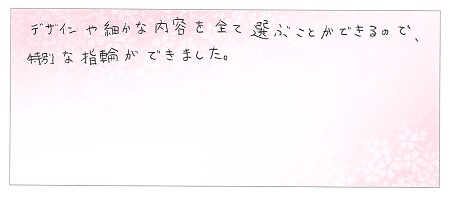 デザインや細かな内容を全て選ぶことができるので、
特別な指輪ができました。